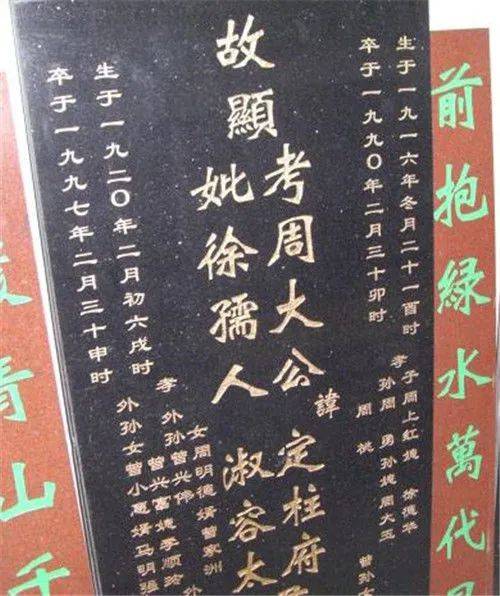 前抱綠水萬代
生于一九一六年冬月二十一酉时
卒于一九九〇年二月三十卯时
孝子周上红媳徐德华
孙周勇孙媳周大玉
周
曾孙女
故顯
考周大公諱定柱府
妣徐孺人淑容太
生于一九二〇年二月初六戌时
卒于一九九七年二月三十申时
孝女周明德婿曾家洲
外孙曾兴伟
曾兴富媳李顺
外孙女曾小
婿马明强
青山千